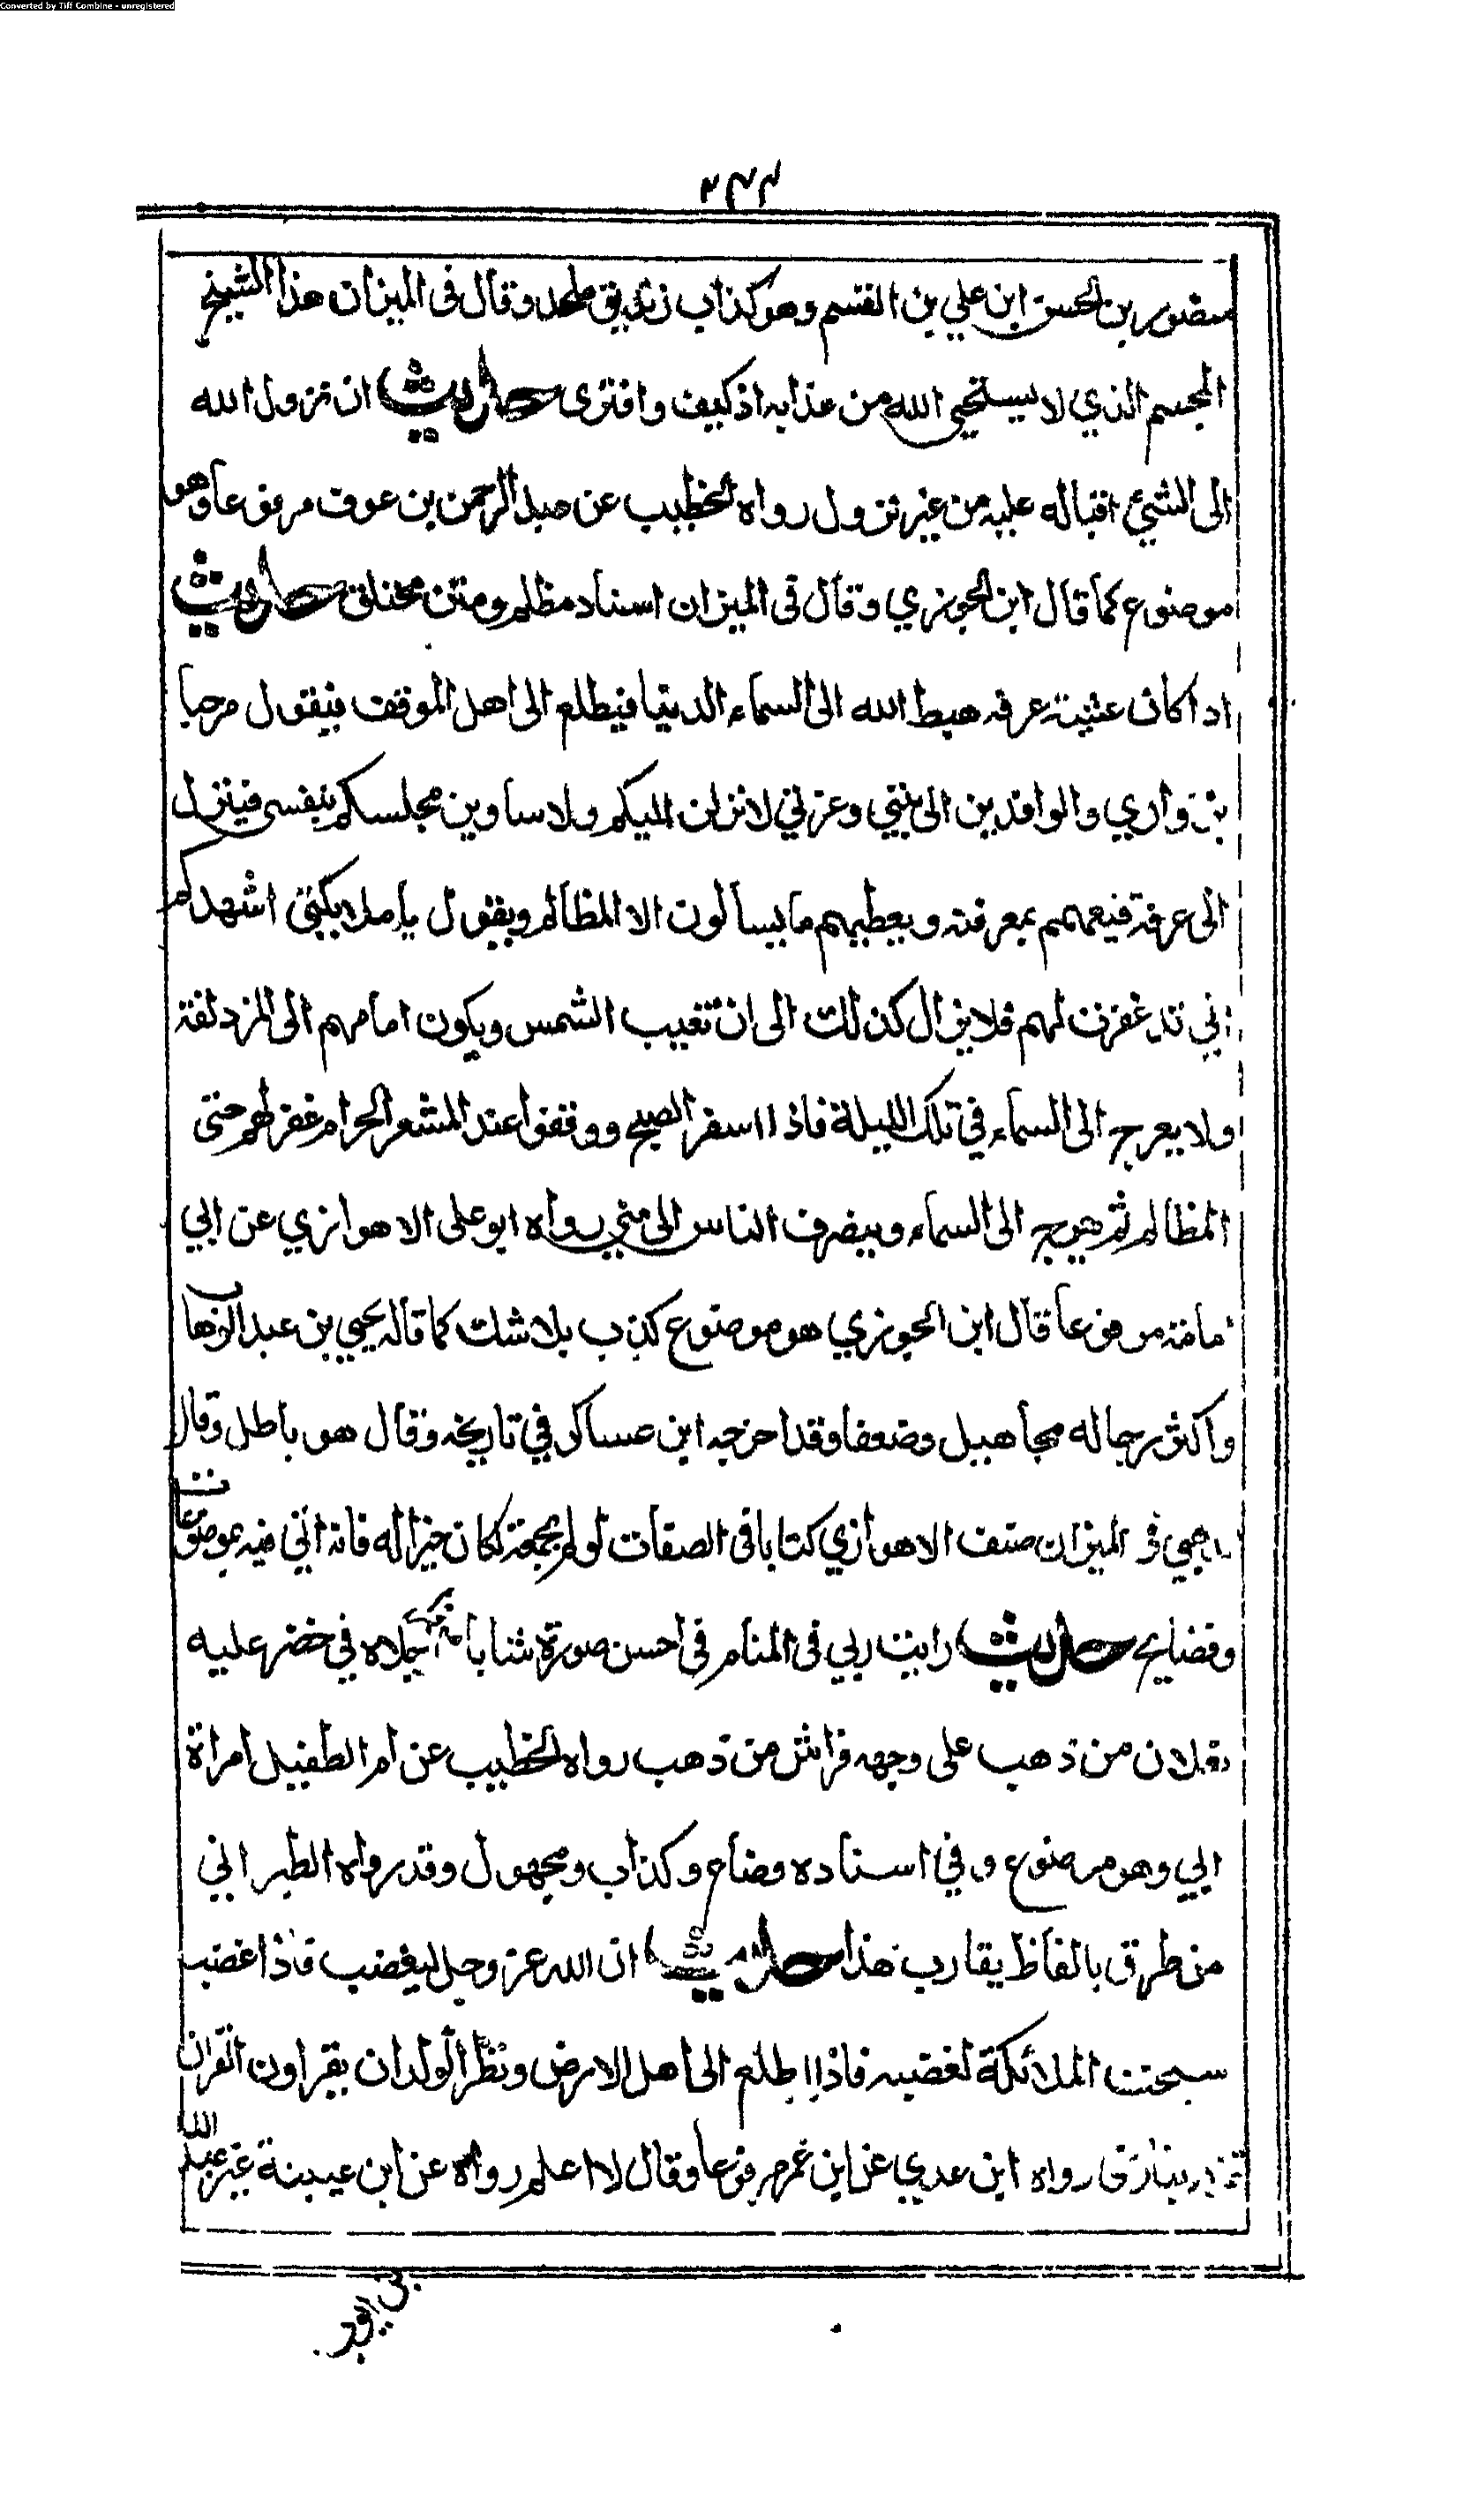 Converted by Tiff Combine - unregistered
٢٤٣
منصور بن الحسن ابن علي بن القسم وهو كذاب زنديق ملحد وقال في الميزان هذا الشيخ
المجسم الذي لا يستحيي الله من عذابه اذ كيف وافترى حديث ان نزول الله
الى الشيئ اقباله عليه من غير نزول رواه الخطيب عن عبد الرحمن بن عوف مرفوعا وهو
موضوع كما قال ابن الجوزي وقال في الميزان اسناد مظلم ومتن مختلق حديث
اذا كان عشية عرفه هبط الله الى السماء الدنيا فيطلع الى اهل الموقف فيقول مرحبا
بزواري والوافدين الى بيتي وعزتي لانزلن اليكم ولاساوين مجلسكم بنفسي فينزل
الى عرفة فيعمهم بمعرفته ويعطيهم ما يسألون الا المظالم ويقول يا ملايكتي اشهدكم
اني قد غفرت لهم فلا يزال كذلك الى ان تغيب الشمس ويكون امامهم الى المزدلفة
ولا يعرج الى السماء في تلك الليلة فاذا اسفر الصبح ووقفوا عند المشعر الحرام غفر لهم حتى
المظالم ثم يعرج الى السماء وينصرف الناس الى منى رواه ابو علي الاهوازي عن ابي
امامة مرفوعا قال ابن الجوزي هو موضوع كذب بلا شك كما قاله يحيي بن عبد الوهاب
واكثر رجاله مجاهيل وضعفا وقد اخرجه ابن عساكر في تاريخه وقال هو باطل وقال
الذهبي في الميزان صنف الاهوازي كتابا في الصفات لو لم يجمعه لكان خيرا له فانه اتي فيه بموضوعات
وفضايح حديث رايت ربي في المنام في احسن صورة شابا رجلاه في خضر عليه
نعلان من ذهب على وجهه فراش من ذهب رواه الخطيب عن ام الطفيل امراة
ابي وهو موضوع وفي اسناده وضاع وكذاب ومجهول وقد رواه الطبراني
من طرق بالفاظ يقارب هذا حديث ان الله عز وجل ليغضب فاذا غضب
سبحت الملائكة لغضبه فاذا اطلع الى اهل الارض ونظر الولدان يقراون القران
رواه ابن عدي عن ابن عمر مرفوعا وقال لا اعلم رواه عن ابن عيينة غير عبد الله